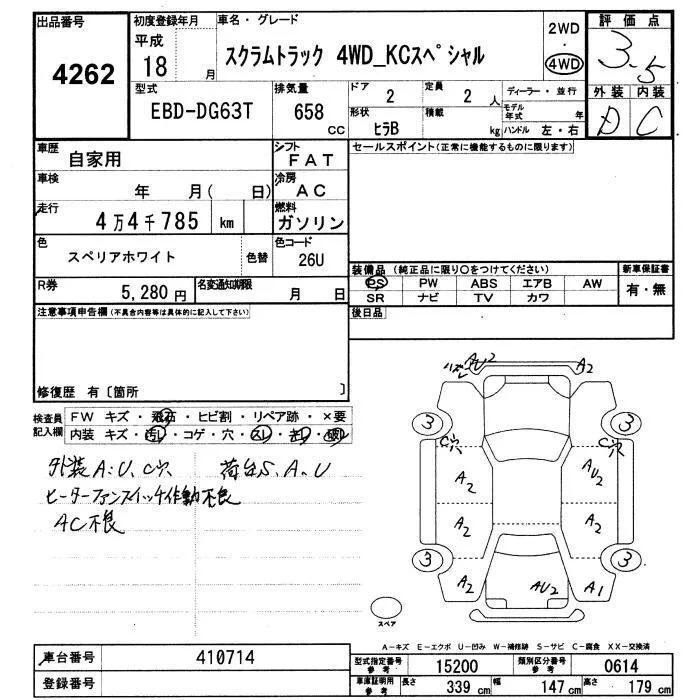 出品番号 4262
初度登録年月 平成 18 月
車名・グレード スクラムトラック 4WD_KCスペシャル
2WD ・ 4WD
評価点 3.5
外装 内装
D C
型式 EBD-DG63T
排気量 658 CC
ドア 2
定員 2 人
形状 ヒラB
積載 kg
ディーラー・並行
モデル年式 年
ハンドル 左・右
車歴 自家用
シフト FAT
車検 年 月( 日)
冷房 AC
走行 4万4千785 km
燃料 ガソリン
色 スペリアホワイト 色替
色コード 26U
R券 5,280円
名変通知期限 月 日
セールスポイント(正常に機能するものに限ります)
装備品 (純正品に限り○をつけてください)
PS PW ABS エアB AW
SR ナビ TV カワ
新車保証書 有・無
後日品
注意事項申告欄(不具合内容等は具体的に記入して下さい)
修復歴 有〔箇所 〕
検査員記入欄
FW キズ・飛石・ヒビ割・リペア跡・×要
内装 キズ・汚レ・コゲ・穴・スレ・キレ・破レ
外装A.U.C穴 荷台S.A.U
ヒーターファンスイッチ作動不良
AC不良
AU2 A2
3 3
C穴 C穴
A2 AU2
A2 A2
3 3
A2 AU2 A1
スペア
A-キズ E-エクボ U-凹み W-補修跡 S-サビ C-腐食 XX-交換済
車台番号 410714
登録番号
型式指定番号 参考 15200
類別区分番号 参考 0614
車庫証明用 参考 長さ 339 cm 幅 147 cm 高さ 179 cm